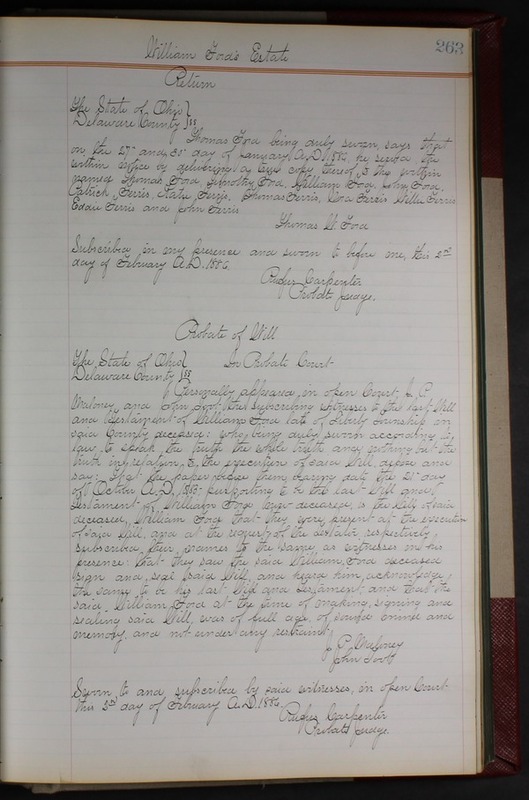 263
William Ford's Estate
Return
The State of Ohio }
Delaware County } ss
Thomas Ford being duly sworn, says that
on the 27" and 30" day of January A.D. 1886 he served the
within notice by delivering a true copy thereof, to the within
named Thomas Ford, Timothy Ford, William Ford, John Ford,
Patrick Ferris, Kate Ferris, Thomas Ferris, Dora Ferris Nellie Ferris
Eddie Ferris and John Ferris
Thomas Ford
Subscribed in my presence and sworn to before me, this 2nd
day of February A.D. 1886.
Rufus Carpenter
Probate Judge.
Probate of Will
The State of Ohio }
Delaware County } ss
In Probate Court
Personally appeared in open Court, J. P.
Maloney and John the subscribing witnesses to the last Will
and Testament of William Ford late of Liberty Township in
said County deceased: who being duly sworn according to
law to speak the truth the whole truth and nothing but the
truth in relation to the execution of said Will, depose and
say: That the paper before them, bearing date the 21" day
of October A.D. 1885 purporting to be the last Will and
Testament of William Ford now deceased, is the Will of said
deceased, William Ford that they were present at the execution
of said Will, and at the request of the testator respectively
subscribed their names to the same as witnesses in his
presence: that they saw the said William Ford deceased
sign and seal said Will, and heard him acknowledge
the same to be his last Will and Testament; and that the
said William Ford at the time of making, signing and
sealing said Will, was of full age, of sound mind and
memory, and not under any restraint.
J. P. Maloney
John
Sworn to and subscribed by said witnesses, in open Court
this 3rd day of February A.D. 1886.
Rufus Carpenter
Probate Judge.